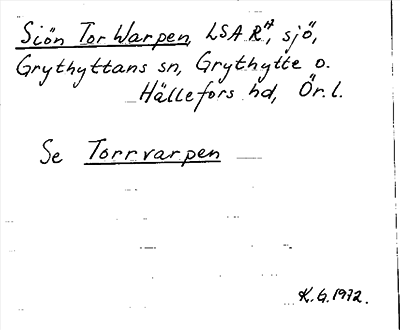 Siön Tor Warpen, LSA R⁴, sjö,
Grythyttans sn, Grythytte o.
Hällefors hd, Ör. l.
Se Torrvarpen
K. G. 1972.